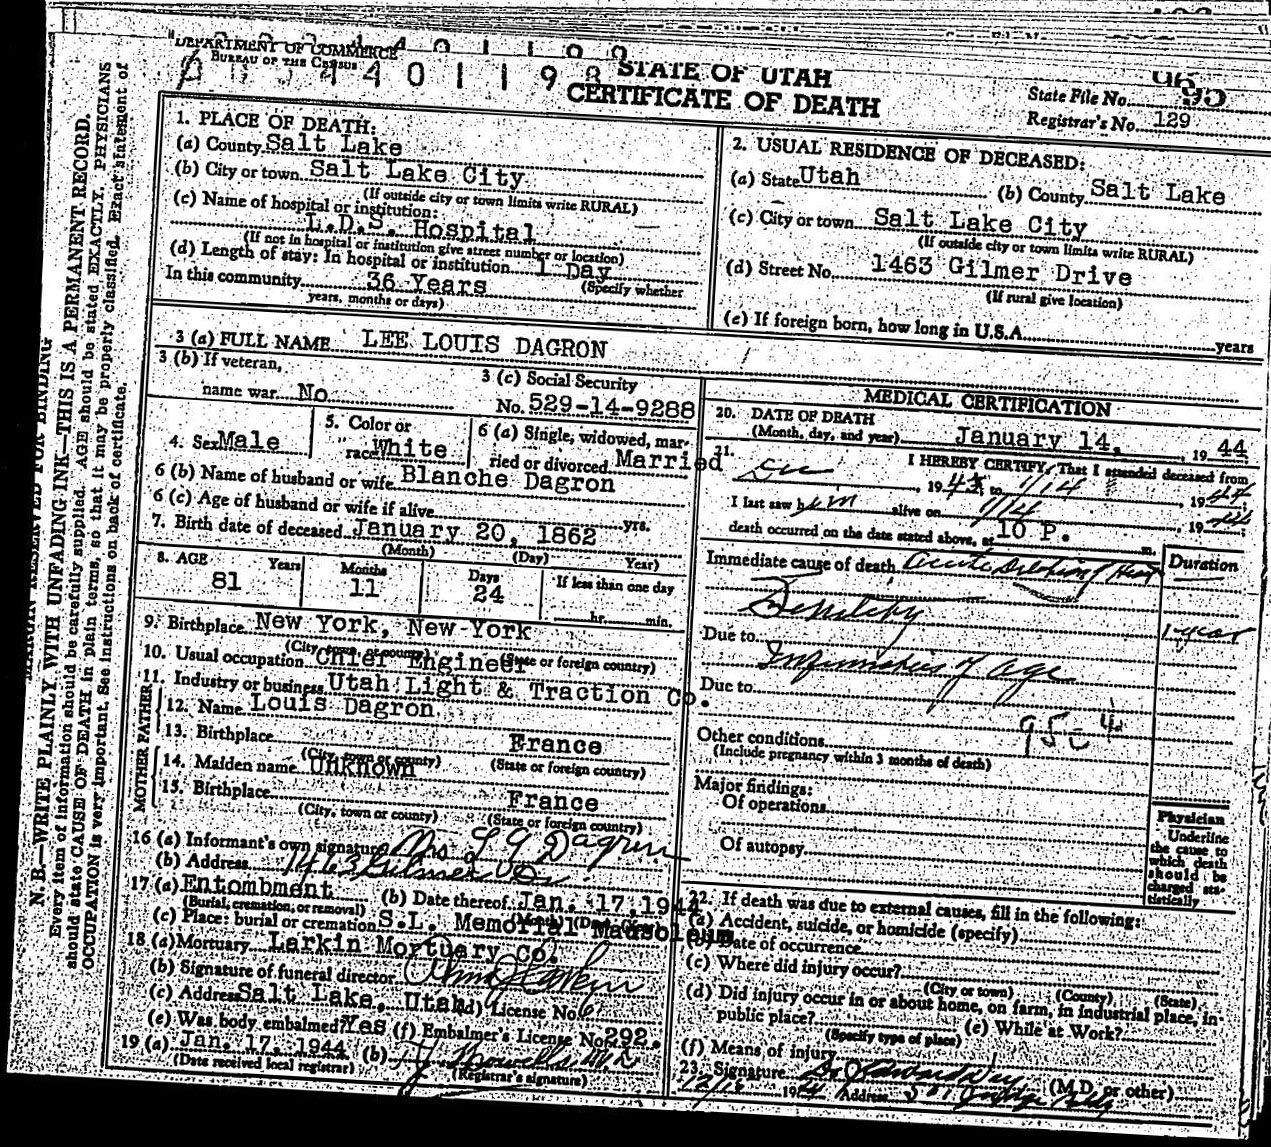 DEPARTMENT OF COMMERCE
BUREAU OF THE CENSUS
STATE OF UTAH
CERTIFICATE OF DEATH
State File No. 95
Registrar's No. 129
MARGIN RESERVED FOR BINDING
N. B.—WRITE PLAINLY WITH UNFADING INK—THIS IS A PERMANENT RECORD.
Every item of information should be carefully supplied. AGE should be stated EXACTLY. PHYSICIANS
should state CAUSE OF DEATH in plain terms, so that it may be properly classified. Exact statement of
OCCUPATION is very important. See instructions on back of certificate.
1. PLACE OF DEATH:
(a) County Salt Lake
(b) City or town Salt Lake City
(If outside city or town limits write RURAL)
(c) Name of hospital or institution:
L.D.S. Hospital
(If not in hospital or institution give street number or location)
(d) Length of stay: In hospital or institution 1 Day
(Specify whether
In this community 36 Years
years, months or days)
2. USUAL RESIDENCE OF DECEASED:
(a) State Utah (b) County Salt Lake
(c) City or town Salt Lake City
(If outside city or town limits write RURAL)
(d) Street No. 1463 Gilmer Drive
(If rural give location)
(e) If foreign born, how long in U.S.A. years
3 (a) FULL NAME LEE LOUIS DAGRON
3 (b) If veteran,
name war No
3 (c) Social Security
No. 529-14-9288
4. Sex Male
5. Color or
race White
6 (a) Single, widowed, mar-
ried or divorced Married
6 (b) Name of husband or wife Blanche Dagron
6 (c) Age of husband or wife if alive yrs.
7. Birth date of deceased January 20, 1862
(Month) (Day) Year)
8. AGE Years Months Days If less than one day
81 11 24 hr. min.
9. Birthplace New York, New York
(City, town, or county) (State or foreign country)
10. Usual occupation Chief Engineer
11. Industry or business Utah Light & Traction Co.
FATHER
12. Name Louis Dagron
13. Birthplace France
(City, town or county) (State or foreign country)
MOTHER
14. Maiden name Unknown
15. Birthplace France
(City, town or county) (State or foreign country)
16 (a) Informant's own signature Mrs L Dagron
(b) Address 1463 Gilmer Dr.
17 (a) Entombment (b) Date thereof Jan. 17, 1944
(Burial, cremation, or removal) (Month) (Day)
(c) Place: burial or cremation S.L. Memorial Mausoleum
18 (a) Mortuary Larkin Mortuary Co.
(b) Signature of funeral director
(c) Address Salt Lake, Utah (d) License No. 6
(e) Was body embalmed? Yes (f) Embalmer's License No. 292.
19 (a) Jan. 17, 1944 (b)
(Date received local registrar) (Registrar's signature)
MEDICAL CERTIFICATION
20. DATE OF DEATH
(Month, day, and year) January 14, 19 44
21. I HEREBY CERTIFY, That I attended deceased from
Dec , 1943, to 1/14 1944
I last saw him alive on 1/14 19 44
death occurred on the date stated above, at 10 P. m.
Immediate cause of death Acute Dilation of Heart
Duration
Senility
1 year
Due to
Infirmities of age
Due to
95 c 4
Other conditions
(Include pregnancy within 3 months of death)
Major findings:
Of operations
Of autopsy
Physician
Underline
the cause to
which death
should be
charged sta-
tistically
22. If death was due to external causes, fill in the following:
(a) Accident, suicide, or homicide (specify)
(b) Date of occurrence
(c) Where did injury occur?
(City or town) (County) (State)
(d) Did injury occur in or about home, on farm, in industrial place, in
public place?
(Specify type of place) (e) While at Work?
(f) Means of injury
23. Signature (M.D. or other)
Address